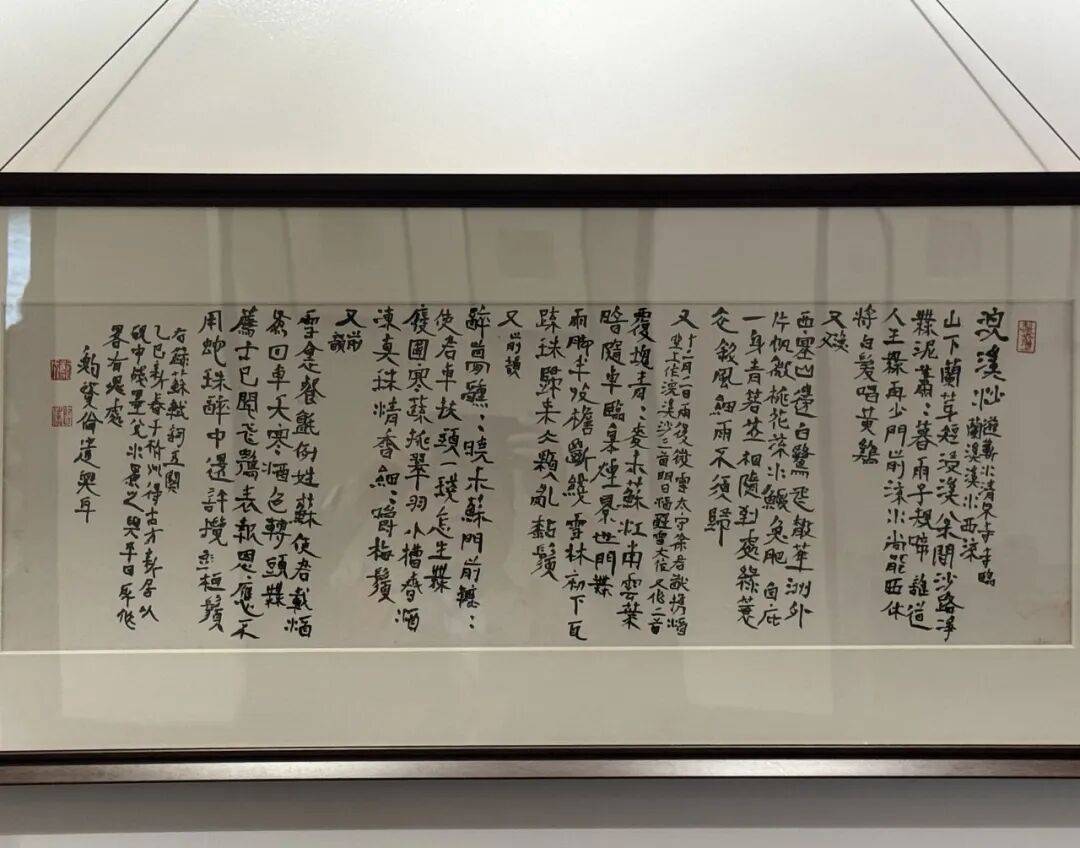 浣溪沙 遊蘄水清泉寺寺臨
蘭溪溪水西流
山下蘭芽短浸溪松間沙路淨
無泥蕭〻暮雨子規啼 誰道
人生無再少門前流水尚能西休
將白髮唱黃雞
又
西塞山邊白鷺飛散花洲外
片帆微桃花流水鱖魚肥 自庇
一身青箬笠相隨到處綠蓑
衣斜風細雨不須歸
又 十二月二日雨後微雪太守徐君猷攜酒
坐上作浣溪沙三首明日酒醒雪大作又作二首
覆塊青〻麥未蘇江南雲葉
暗隨車臨皋煙景世間無
雨腳半收檐斷線雪牀初下瓦
疏珠歸來冰顆亂黏鬚
又 前韻
醉夢醺〻曉未蘇門前轆〻
使君車扶頭一琖怎生無
廢圃寒蔬挑翠羽小槽春酒
凍真珠清香細〻嚼梅鬚
又 前韻
雪裏餐氈例姓蘇使君載酒
為回車天寒酒色轉頭無
薦士已聞飛鶚表報恩應不
用蛇珠醉中還許攬桓鬚
右錄蘇軾詞五闋
乙巳新春于杭州得古 新居以
硯中殘墨 水 之與平日所作
略有異處
遣興耳